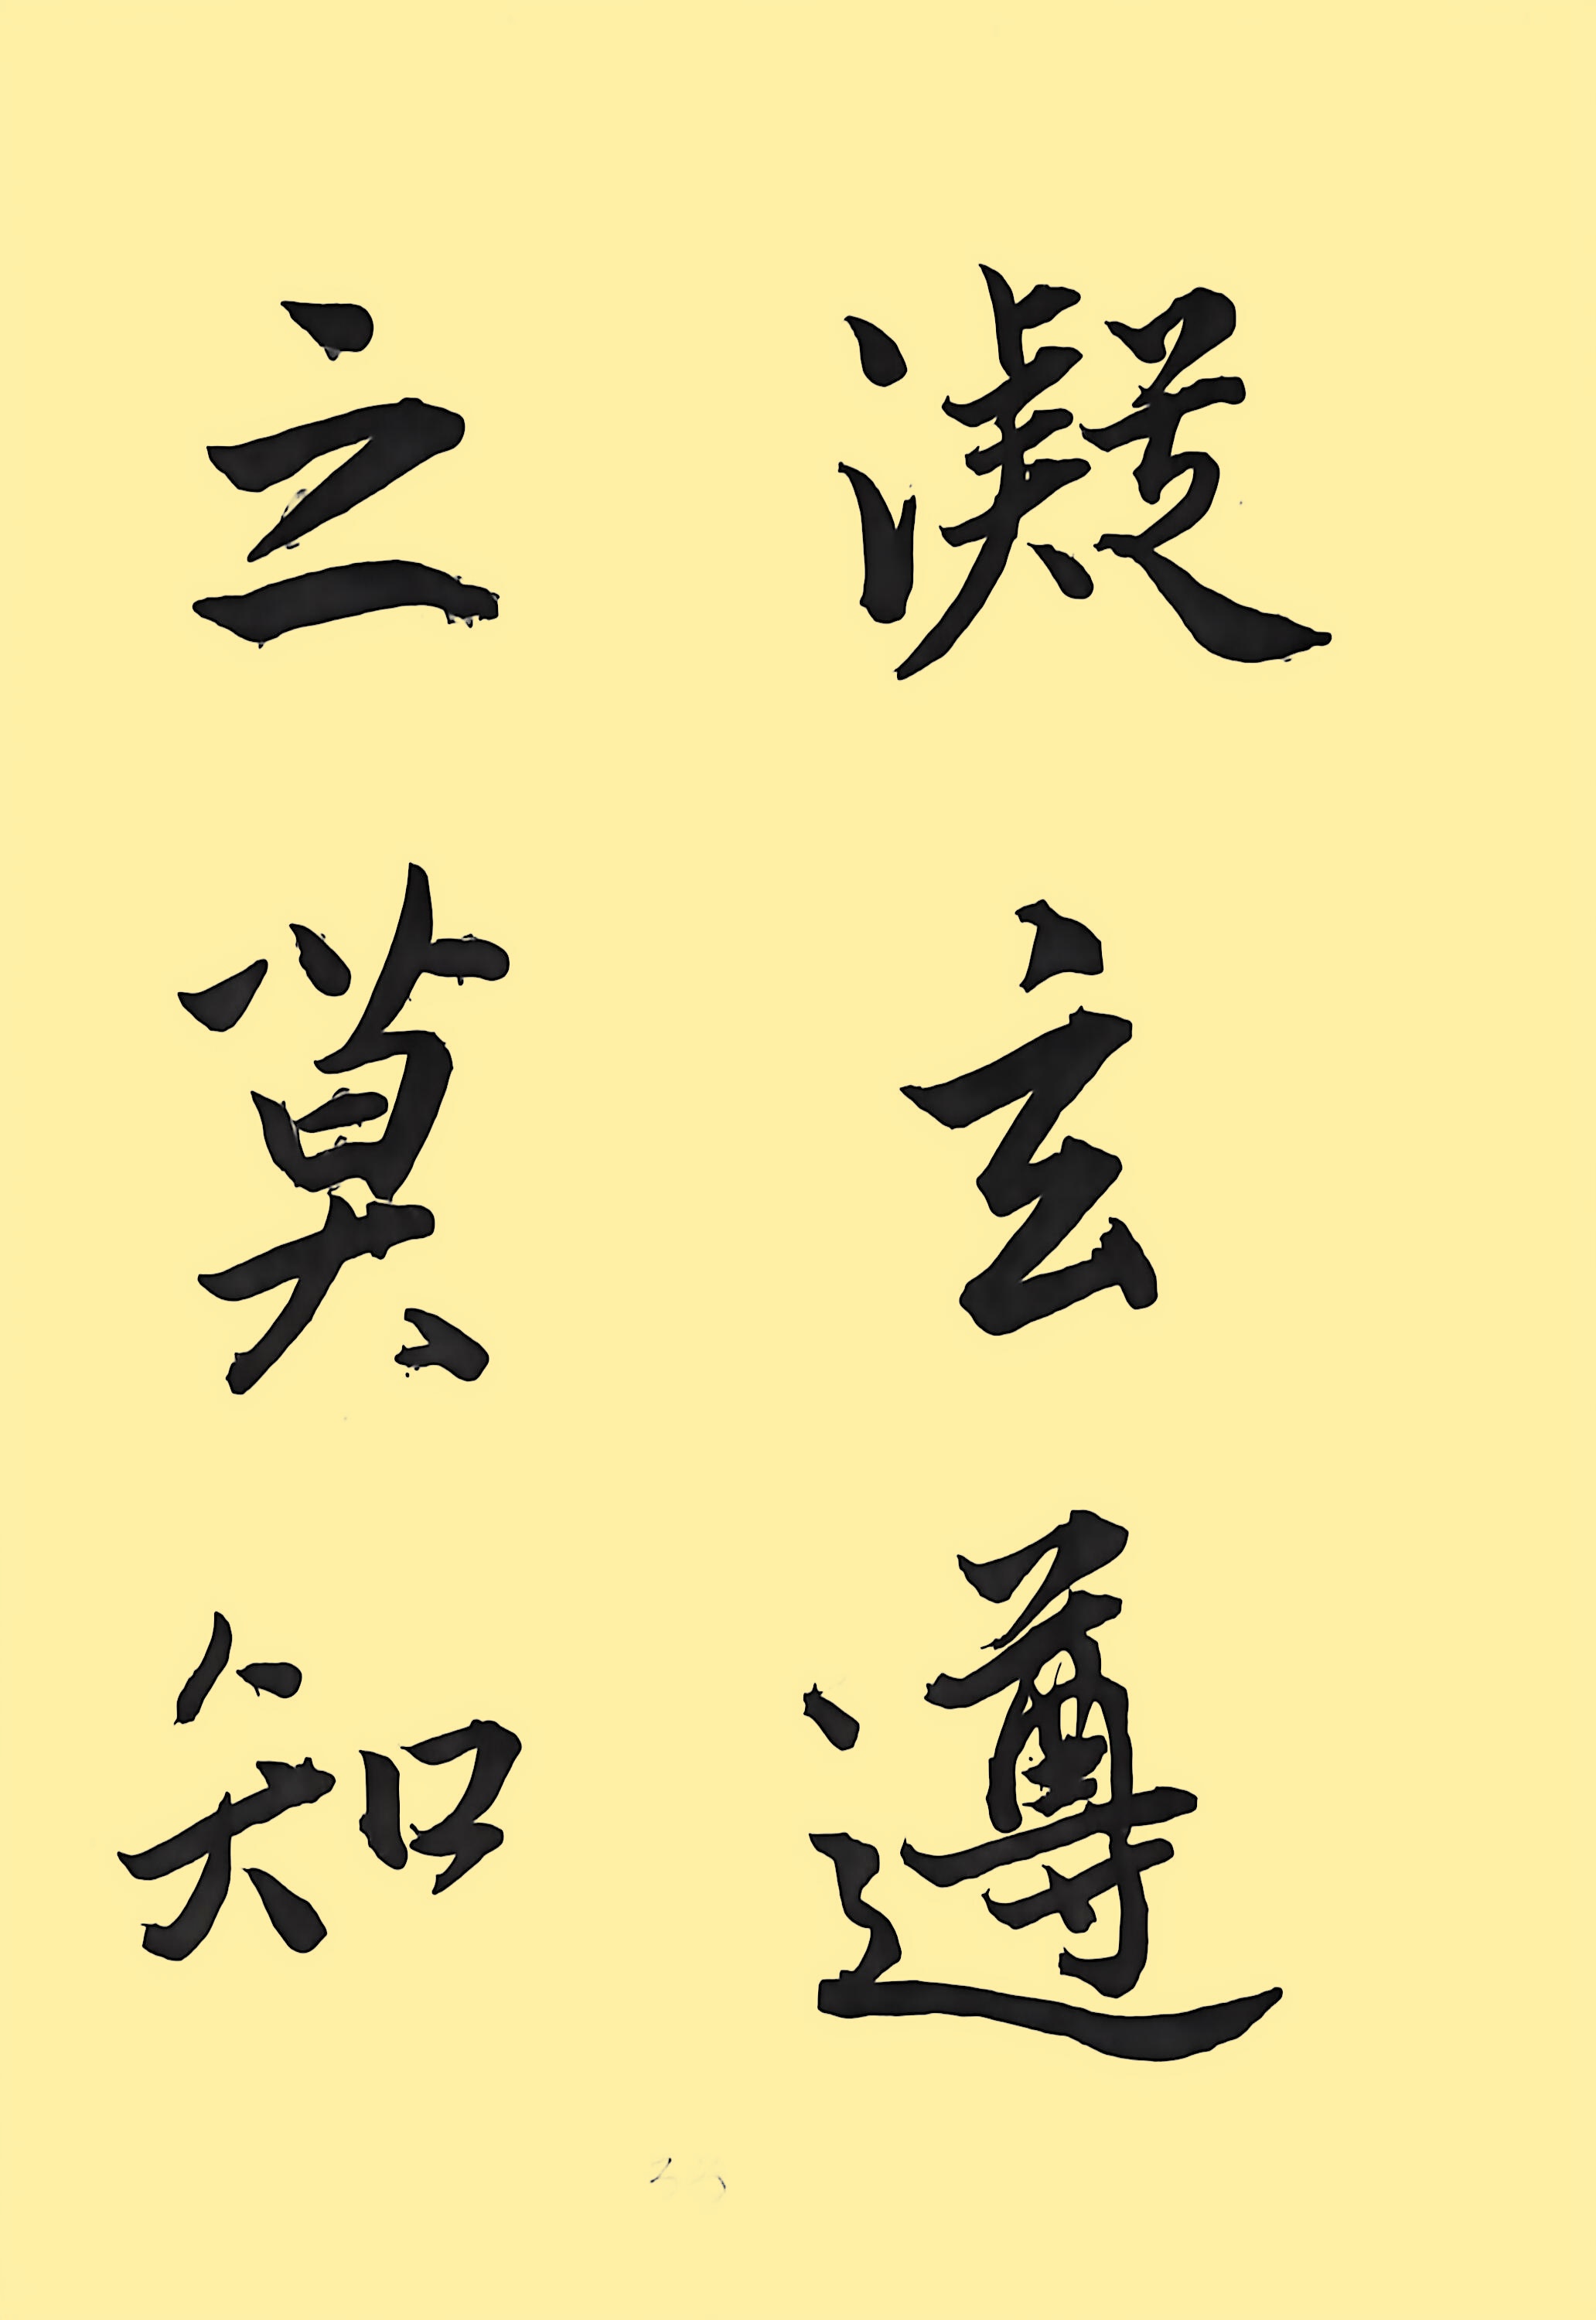 凝玄遵
之莫知